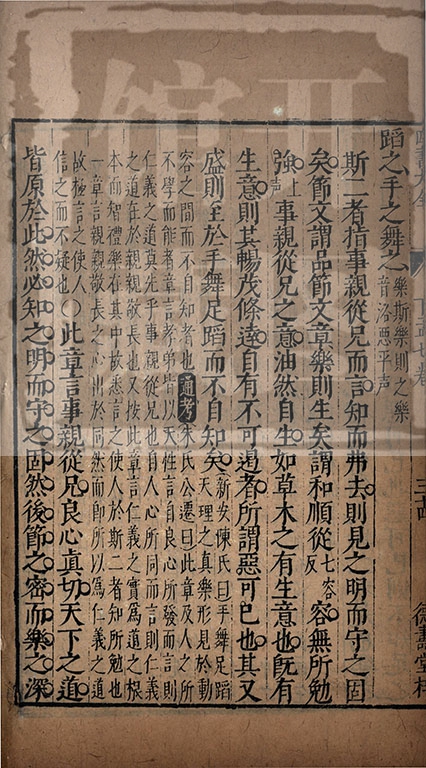 蹈之手之舞之樂斯樂則之樂
音洛惡平聲
斯二者指事親從兄而言知而弗去則見之明而守之固
矣節文謂品節文章樂則生矣謂和順從七容反容無所勉
強上聲事親從兄之意油然自生如草木之有生意也旣有
生意則其暢茂條達自有不可遏者所謂惡可已也其又
盛則至於手舞足蹈而不自知矣新安陳氏曰手舞足蹈
天理之真樂形見於動
容之間而不自知者也通考朱氏公遷曰此章及人之所
不學而能者章言孝弟皆以天性言自良心所發而言則
仁義之道莫先乎事親從兄也自人心所同而言則仁義
之道在於親親敬長也又按此章言仁義之實爲道之根
本而智禮樂在其中故悉言之使人於斯二者知所勉也
一章言親親敬長之心出於同然而即所以爲仁義之道
故極言之使人
信之而不疑也○此章言事親從兄良心真切天下之道
皆原於此然必知之明而守之固然後節之密而樂之深
德壽堂梓